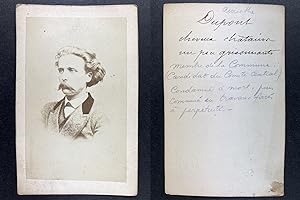 Dupont
cheveux châtains
un peu grisonnants
membre de la Commune
Candidat du Comité Central
Condamné à mort, puis
commué en travaux forcés
à perpétuité